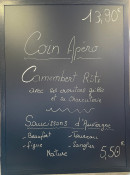 13,90€
Coin Apéro
Camembert Rôti
avec ses croutons grillés
et sa charcuterie
Saucissons d'Auvergne
- Beaufort
- Taureau
- Figue
- Sanglier
Nature
5,50€